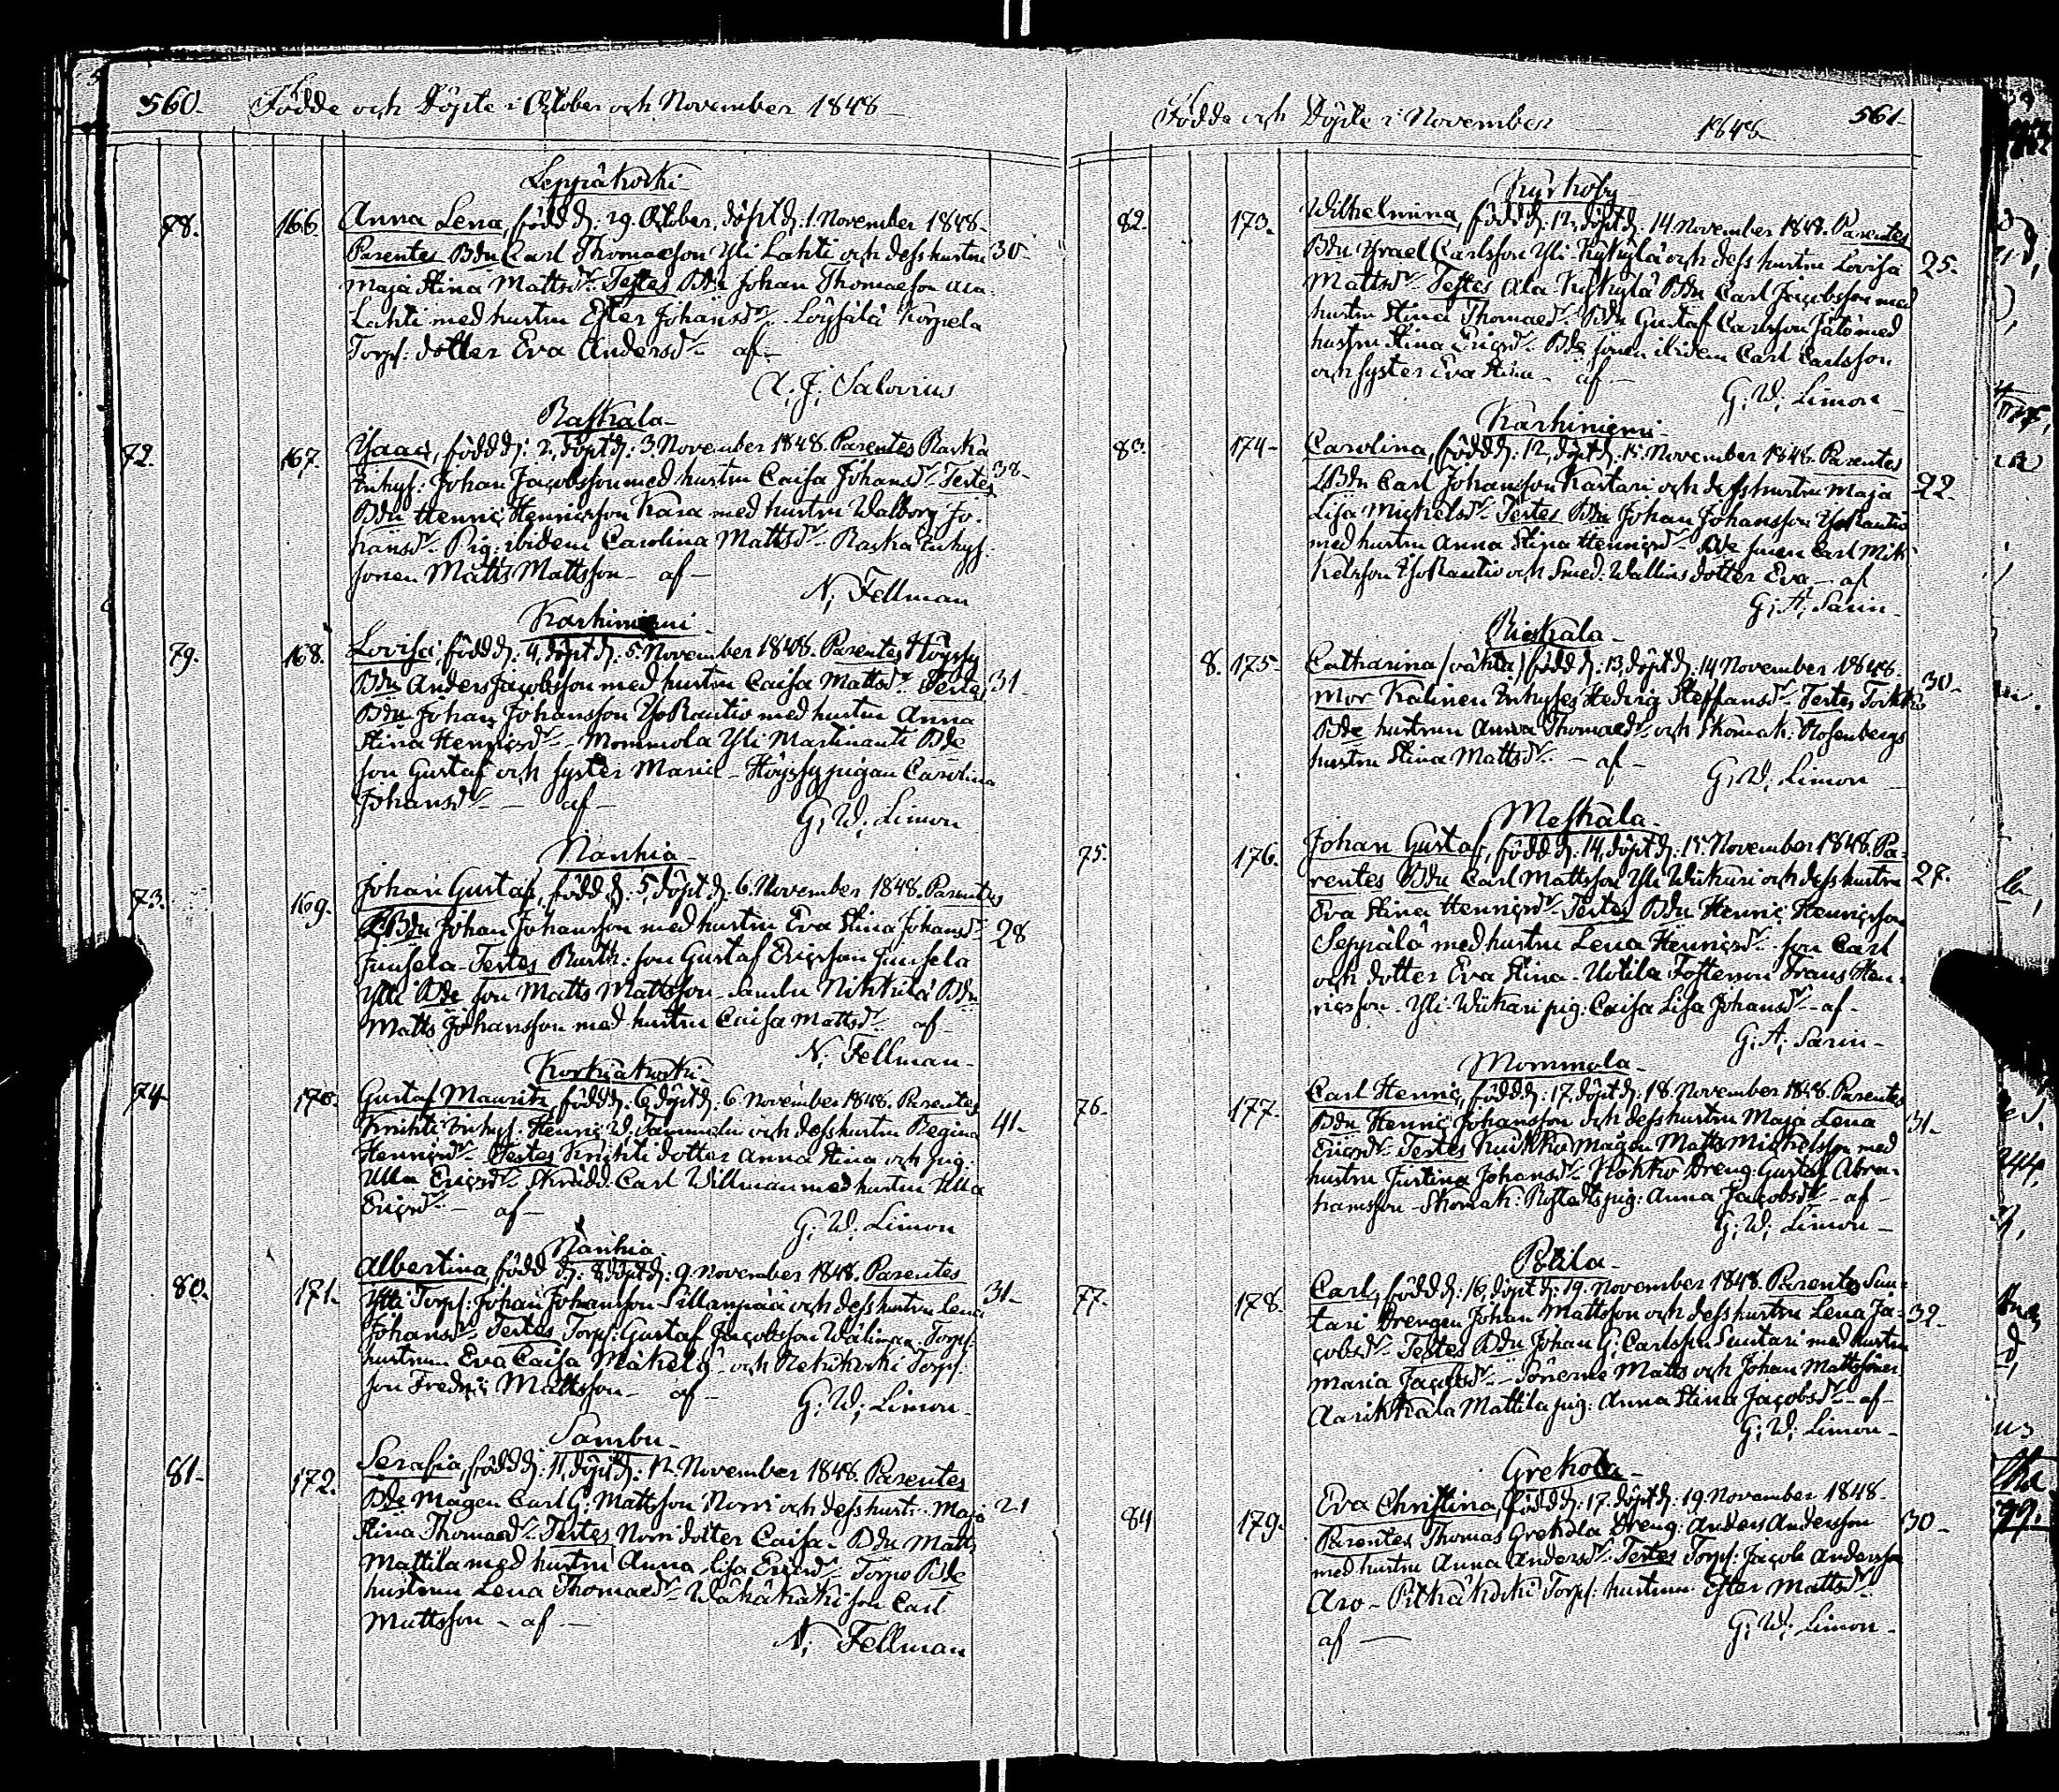 560. Födde och Döpte i October och November 1848
Leppäkoski
78. 166. Anna Lena, född d: 29. October, döpt d: 1. November 1848.
Parentes Bdn Carl Thomaeson Yli Lahti och dess hustru 30
Maja Stina Mattsdr. Testes Bdn Johan Thomaeson Ala
Lahti med hustru Ester Johansdr. Korpela
Torp: dotter Eva Andersdr. af
A. J. Salovius
Raskala
72. 167. Isaac, född d: 2, döpt d: 3. November 1848. Parentes Raska
Inhys: Johan Jacobsson med hustru Caisa Johansdr. Testes 38
Bdn Henric Henricsson Kara med hustru Walborg Jo-
hansdr. Pig: ibidem Carolina Mattsdr. Raska Inhys:
sonen Matts Mattsson af
N. Fellman
Karhiniemi
79. 168. Lovisa, född d: 4, döpt d: 5. November 1848. Parentes Höyssy
Bdn Anders Jacobsson med hustru Caisa Mattsdr. Testes 31
Bdn Johan Johansson YsoRautio med hustru Anna
Stina Henricsdr. Mommola Yli Martinanti Bde
son Gustaf och syster Maria Höyssy pigan Carolina
Johansdr. af
G. W. Limon
Nanhia
73. 169. Johan Gustaf, född d: 5, döpt d: 6. November 1848. Parentes
Bdn Johan Johansson med hustru Eva Stina Johansdr. 28
Junsela Testes Rusth: son Gustaf Ericsson Junsela
Ylli Bde son Matts Mattsson Sambu Nikkilä Bdn
Matts Johansson med hustru Caisa Mattsdr. af
N. Fellman
Korkiakoski
74. 170. Gustaf Mauritz, född d: 6, döpt d: 6. November 1848. Parentes
Krihti Inhys: Henric W. Tammelin och dess hustru Regina 41
Henricsdr. Testes Krihti dotter Anna Stina och pig:
Ulla Ericsdr. Skrädd: Carl Willman med hustru Ulla
Ericsdr. af
G. W. Limon
Nanhia
80. 171. Albertina, född d: 8, döpt d: 9. November 1848. Parentes
Ylli Torp: Johan Johansson Sillanpää och dess hustru Lena 31
Johansdr. Testes Torp: Gustaf Jacobsson Wäliman Torp:
hustrun Eva Caisa Mäkelä och Torp:
son Fredric Mattsson af
G. W. Limon
Sambu
81. 172. Serafia, född d: 11, döpt d: 12. November 1848. Parentes
Bde Mågen Carl G. Mattsson Norri och dess hustr: Maja 21
Stina Thomaedr. Testes Norri dotter Caisa Bdn Matts
Mattila med hustru Anna Lisa Ericsdr. Torpo Bde
hustrun Lena Thomaedr. son Carl
Mattsson af
N. Fellman
Födde och Döpte i November 1848 561
Kyrkoby
82. 173. Wilhelmina, född d: 12, döpt d: 14. November 1848. Parentes
Bdn Ysrael Carlsson Yli Kykylä och dess hustru Lovisa 25.
Mattsdr. Testes Ala Kykylä Bdn Carl Jacobsson med
hustru Stina Thomaedr. Bdn Gustaf Carlsson med
hustru Stina Ericsdr. Bde sonen ibidem Carl Carlsson
och syster Eva Stina af
G. W. Limon
Karhiniemi
83. 174. Carolina, född d: 12, döpt d: 15. November 1848. Parentes
Bdn Carl Johansson Kartari och dess hustru Maja 22.
Lisa Michelsdr. Testes Bdn Johan Johansson YsoRautio
med hustru Anna Stina Henricsdr. Bde sonen Carl Mik-
kelsson YsoRautio och Smed: Wallins dotter Eva af
G. A. Sarin
Rieskala
8. 175. Catharina (oäkta) född d: 13, döpt d: 14. November 1848.
Mor Kalinen Inhyses Hedvig Steffansdr. Testes 30
Bde hustrun Anna Thomaedr. och Skomak: Rosenbergs
hustru Stina Mattsdr. af
G. W. Limon
Meskala
75. 176. Johan Gustaf, född d: 14, döpt d: 15. November 1848. Pa-
rentes Bdn Carl Mattsson Yli Wiikari och dess hustru 27.
Eva Stina Henricsdr. Testes Bdn Henric Henricsson
Seppälä med hustru Lena Henricsdr. son Carl
och dotter Eva Stina Uotila Fosterson Frans Hen-
ricsson Yli Wiikari pig: Caisa Lisa Johansdr. af
G. A. Sarin
Mommola
76. 177. Carl Henric, född d: 17, döpt d: 18. November 1848. Parentes
Bdn Henric Johansson och dess hustru Maja Lena 31.
Ericsdr. Testes Mågen Matts Michelsson med
hustru Justina Johansdr. Kokko Dreng: Gustaf Abra-
hamsson Skomak: pig: Anna Jacobsdr. af
G. W. Limon
77. 178. Carl, född d: 16, döpt d: 19. November 1848. Parentes Sun-
tari Drengen Johan Mattsson och dess hustru Lena Ja- 32.
cobsdr. Testes Bdn Johan G. Carlsson Suntari med hustru
Maria Jacobsdr. Sönerne Matts och Johan Mattssöner
Aarikkala Mattila pig: Anna Stina Jacobsdr. af
G. W. Limon
Grekola
84 179. Eva Christina, född d: 17, döpt d: 19. November 1848.
Parentes Thomas Grekola Dreng: Anders Andersson 30
med hustru Anna Andersdr. Testes Torp: Jacob Andersson
Aro Pitkäkoski Torp: hustrun Ester Mattsdr.
af
G. W. Limon